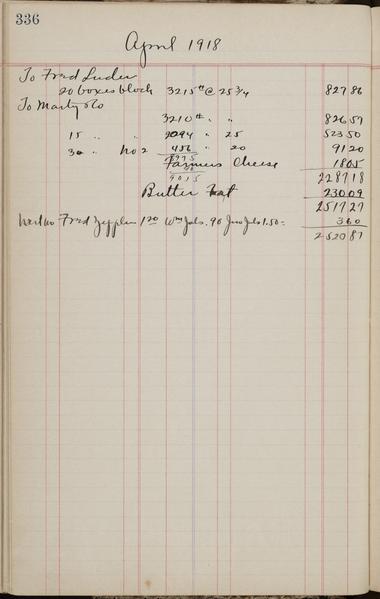 336
April 1918
To Fred Luder
20 boxes block 3215 # @ 25 3/4 827 86
To Marty & Co
3210 # " " 826 57
15 " " 2094 " 25 523 50
30 " No 2 456 " 20 91 20
8975
Farmers Cheese 18 05
9015
2287 18
Butter fat 230 09
2517 27
Fred Zepplin 1 20 Wm Jabs .90 Jno Jabs 1.50 = 3 60
2520 87